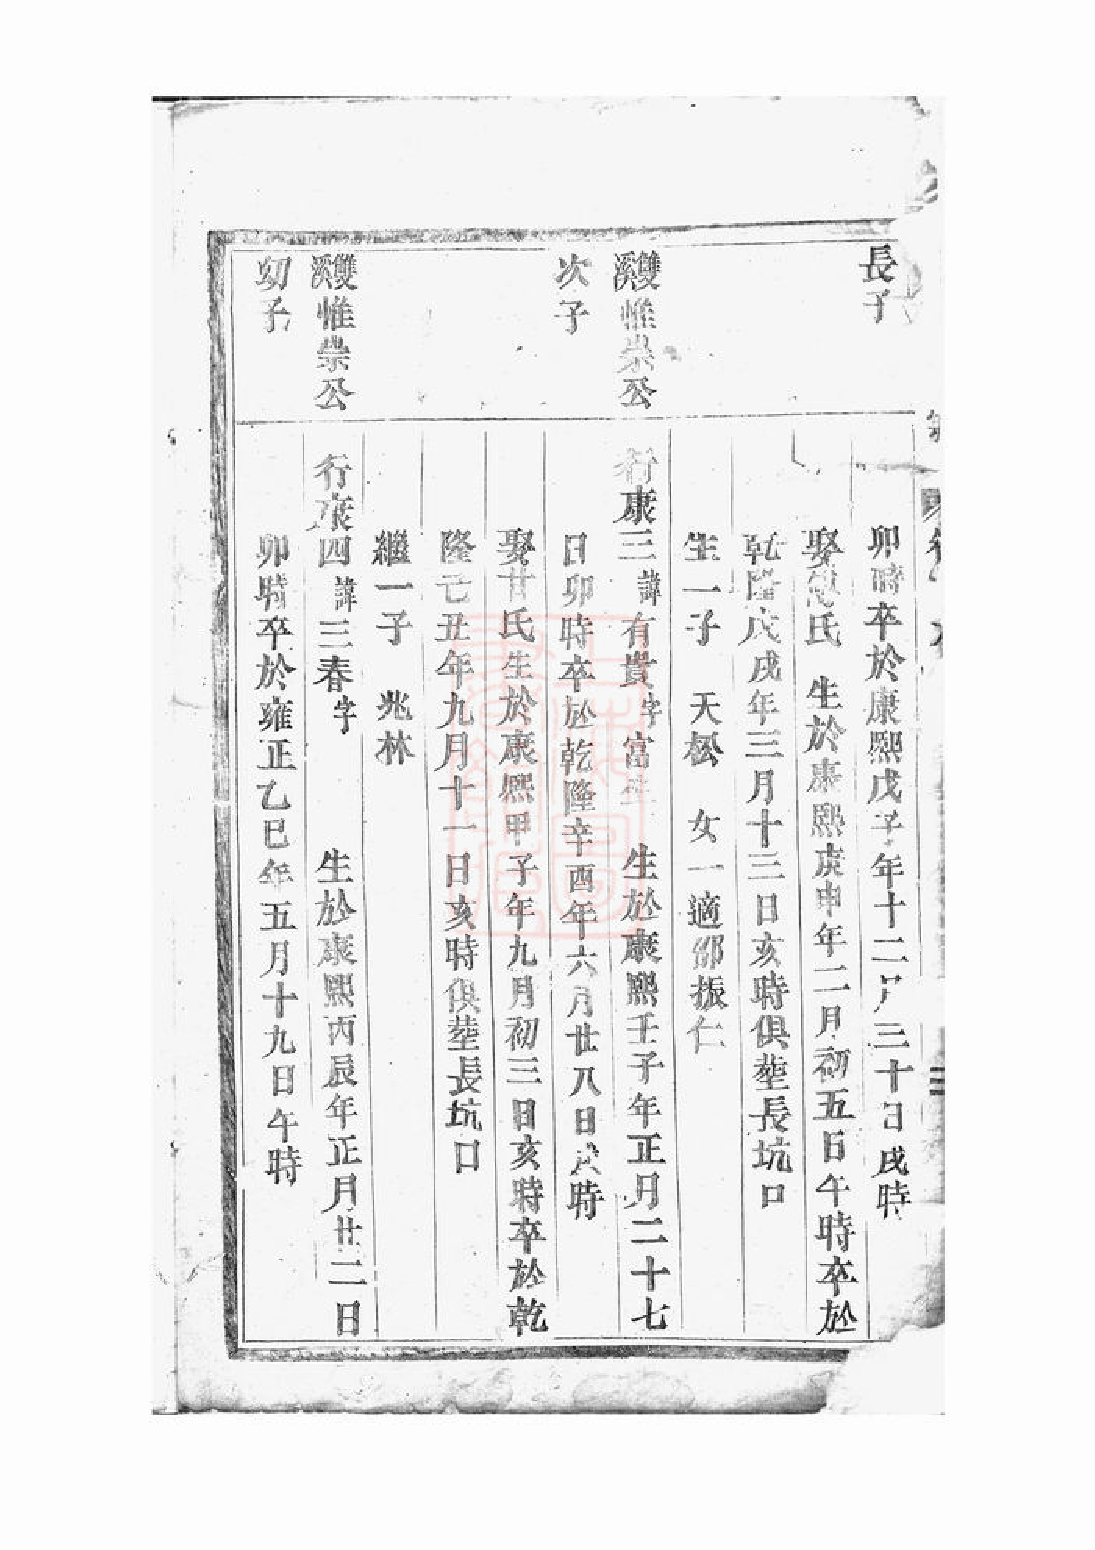 長子
卯時卒於康熙戊子年十二月三十日戌時
娶 氏 生於康熙庚申年二月初五日午時卒於
乾隆戊戌年三月十三日亥時俱塟長坑口
生一子 天松 女一適鄒振仁
雙溪惟崇公
行康三 諱有貴字富生 生於康熙壬子年正月二十七
次子
日卯時卒於乾隆辛酉年六月廿八日 時
娶甘氏生於康熙甲子年九月初三日亥時卒於乾
隆己丑年九月十一日亥時俱塟長坑口
繼一子 兆林
雙溪惟崇公
行康四 諱三春字 生於康熙丙辰年正月廿二日
幼子
卯時卒於雍正乙巳年五月十九日午時